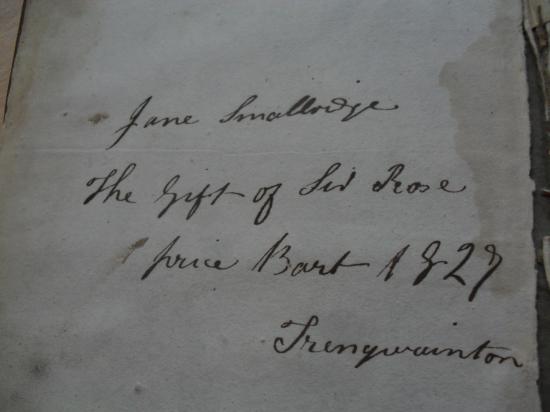 Jane Smallridge
The Gift of Sir Rose
price Bart 1827
Trengwainton